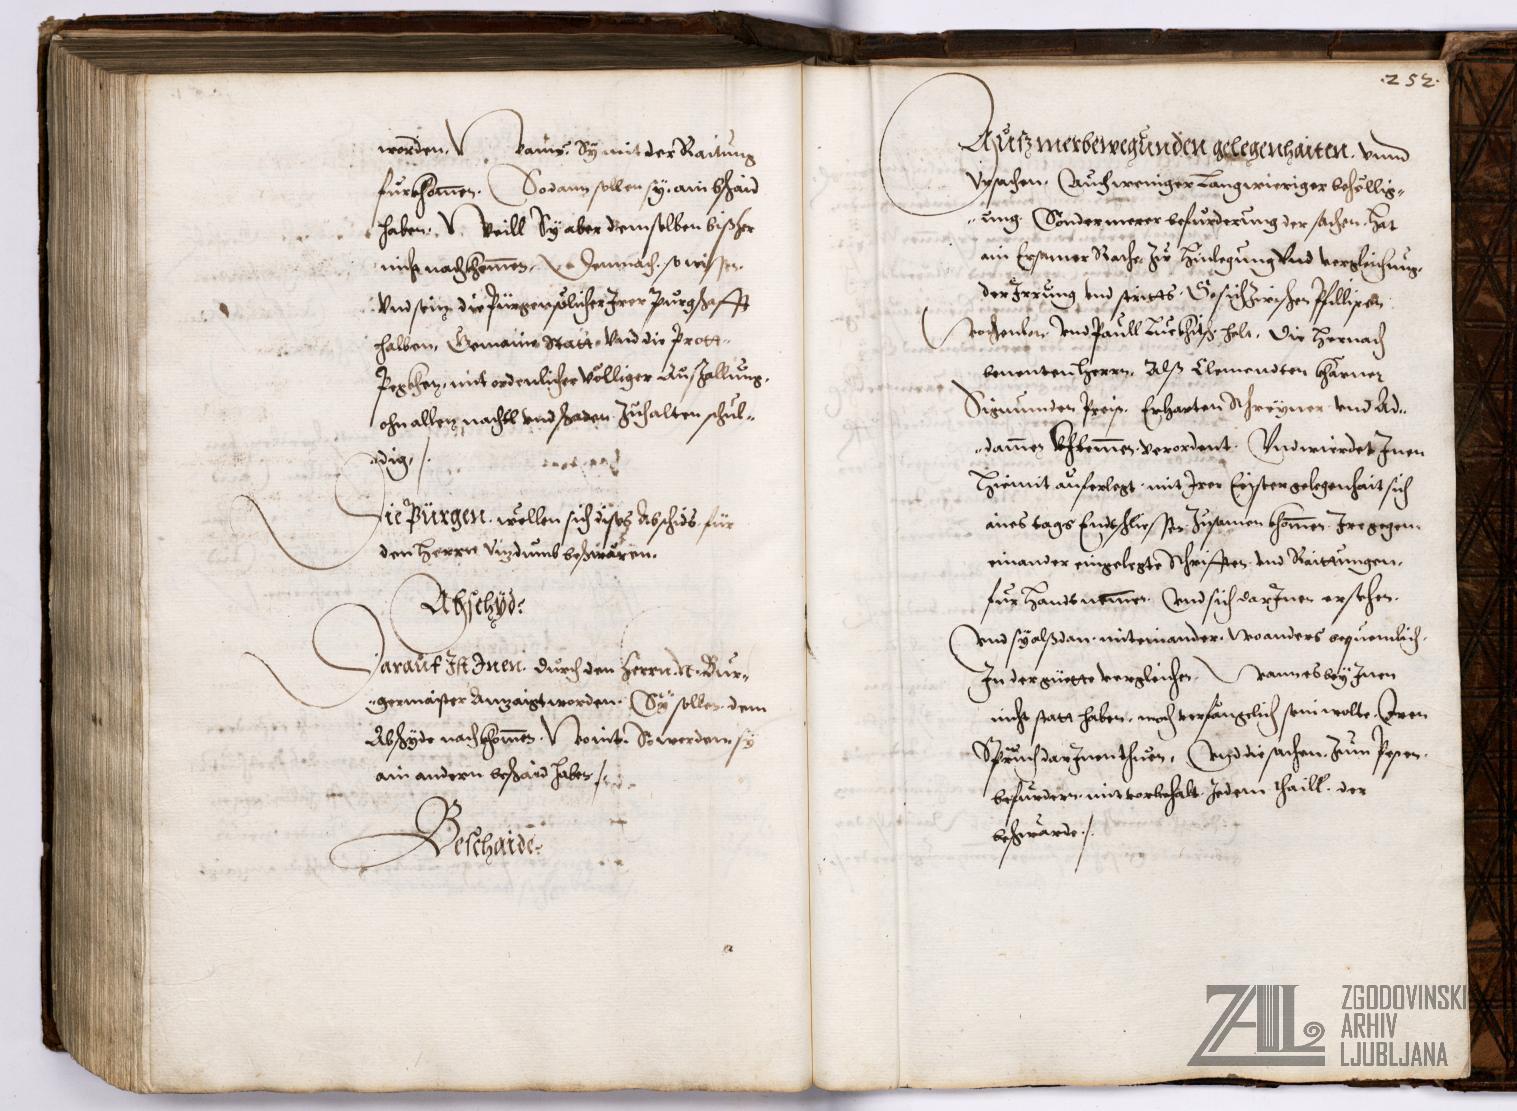 worden. Wanns Sy mit der Raitung
furkhomen. Sodann sollen sy. ain bschaid
haben. Weill Sy aber demselben bißher
nicht nachkhomen. Demnach. so wissen.
Vnd sein die Pürgen solicher Irer Purgschafft
halben, Gemainer Statt. Vnd die Prott-
Pegkhen, mit ordenlicher völliger Auszallung,
ohn allen nachtl vnd schaden Zuhalten schul-
dig,
Die Pürgen. wellen sich dises Abschids für
den Herrn Vizdumb beschwären.
Abschyd:
Darauf Ist Inen. durch den Herrn. A. Bur-
germaister Anzaigt worden. Sy sollen. dem
Abschyde nachkhomen. Wo nit. So werden sy
ain andern beschaid haben
Beschaide:
.252.
Ausz merbewegunden gelegenhaiten. vnnd
Vrsachen. Auch weniger Langwieriger behöllig-
ung. Sonder merer befurderung der sachen. Hat
ain Ersamer Rathe. Zu Hinlegung Vnd vergleichung.
der Irrung vnd stritts. So sich Zwischen Phillipen
vnd Paull helt. Die Hernach
benenten Herrn. Alß Clemendten
Sigmunden Preiß. Erharten Schreyner vnd Ad-
damen verordent. Vnd wierdet Inen
Hiemit auferlegt. mit Irer Erster gelegenhait sich
aines tags Zusamen khomen. Ire gegen
einander eingelegte Schrifften. vnd Raittungen.
fur Handt nemen. Vnd sich darInen ersehen.
Vnd sy alßdan. mit einander. wo anders bequemlich.
In der güette vergleichen. Wann es bey Inen
nicht statt haben. noch verfangelich sein wolte. Iren
Spruch darInen thuen. Vnd die sachen. Zum Pesten.
befurdern. mit vorbehalt. Jedem thaill. der
beschwärde.
ZGODOVINSKI
ARHIV
LJUBLJANA